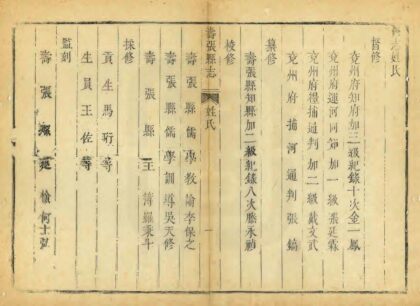 姓氏
督修
兗州府知府加三級紀錄十次金一鳳
兗州府運河同知加一級裘廷霖
兗州府捕通判加二級戴文武
兗州府捕河通判張鎬
纂修
壽張縣知縣加二級紀錄八次滕永禎
校修
壽張縣志
姓氏
壽張縣儒學教諭李保之
壽張縣儒學訓導吳天修
壽張縣主簿羅秉斗
採修
貢生馬珩等
生員王佐等
監刻
壽張縣典史何士弘